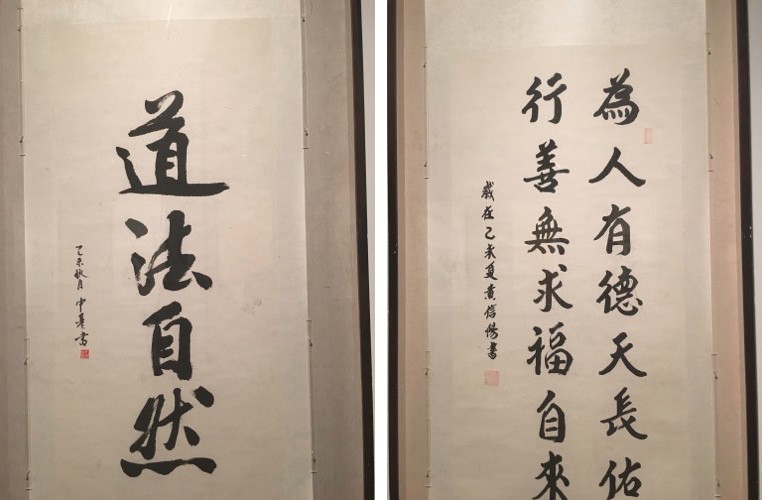 道法自然
乙未秋月 中華書
為人有德天長佑
行善無求福自來
歲在乙未夏黃信陽書